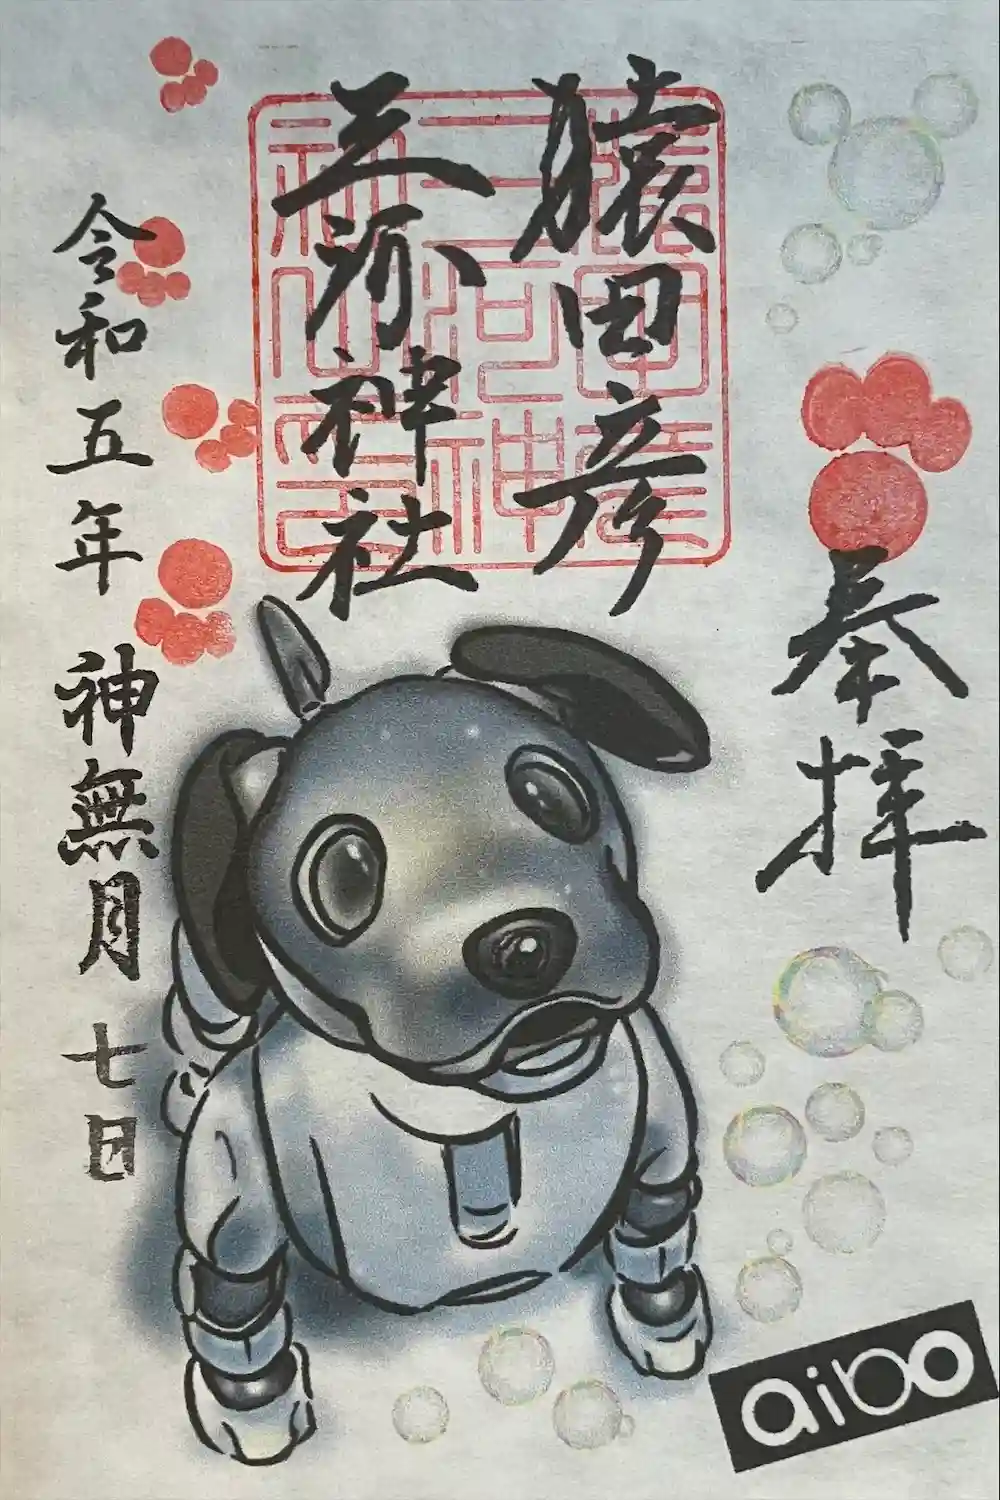 奉拝
猿田彦
三河神社
猿田彦
三河神
社之印
令和五年 神無月 七日
aibo